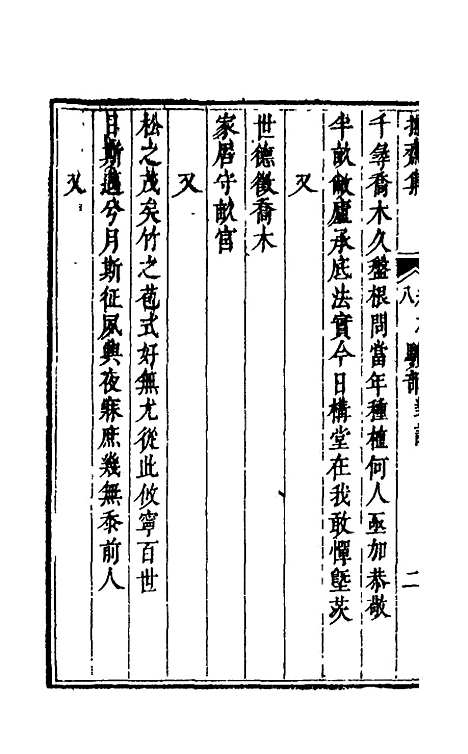 千尋喬木久盤根問當年種植何人亟加恭敬
半畝敝廬承底法實今日構堂在我敢憚塈茨
又
世德徵喬木
家居守畝宮
又
松之茂矣竹之苞式好無尤從此攸寧百世
日斯邁兮月斯征夙興夜寐庶幾無忝前人
又